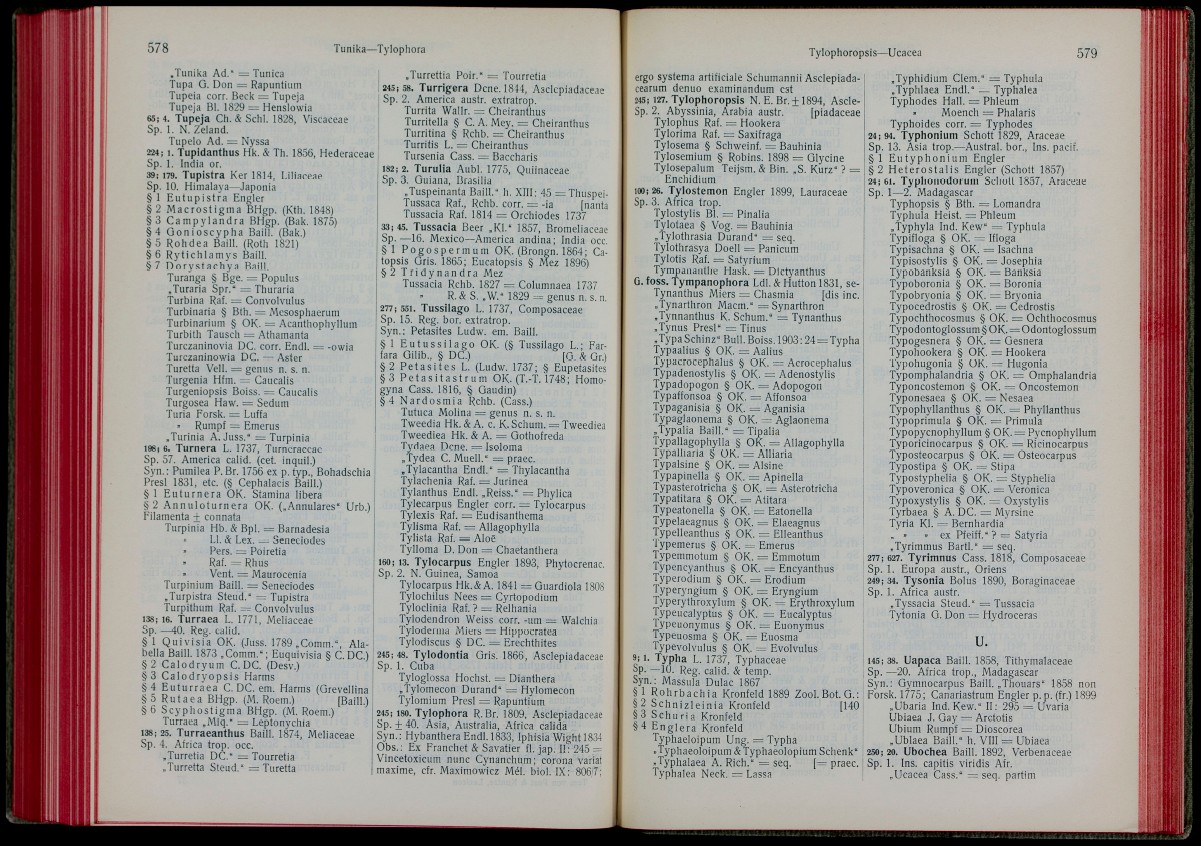 578
Tunika—Tylophora
„Tunika Ad.“ = Tunica
Tupa G. Don = Rapuntium
Tupeia corr. Beck = Tupeja
Tupeja Bl. 1829 = Henslowia
65; 4. Tupeja Ch. & Schl. 1828, Viscaceae
Sp. 1. N. Zeland.
Tupelo Ad. = Nyssa
224; 1. Tupidanthus Hk. & Th. 1856, Hederaceae
Sp. 1. India or.
39; 179. Tupistra Ker 1814, Liliaceae
Sp. 10. Himalaya—Japonia
§ 1 Eutupistra Engler
§ 2 Macrostigma BHgp. (Kth. 1848)
§ 3 Campylandra BHgp. (Bak. 1875)
§ 4 Gonioscypha Baill. (Bak.)
§ 5 Rohdea Baill. (Roth 1821)
§ 6 Rytichlamys Baill.
§ 7 Dorystachya Baill.
Turanga § Bge. = Populus
„Turaria Spr.“ = Thuraria
Turbina Raf. = Convolvulus
Turbinaria § Bth. = Mesosphaerum
Turbinarium § OK. = Acanthophyllum
Turbith Tausch = Athamanta
Turczaninovia DC. corr. Endl. = -owia
Turczaninowia DC. = Aster
Turetta Vell. = genus n. s. n.
Turgenia Hfm. = Caucalis
Turgeniopsis Boiss. = Caucalis
Turgosea Haw. = Sedum
Turia Forsk. = Luffa
„ Rumpf = Emerus
„Turinia A. Juss.“ = Turpinia
198; 6. Turnera L. 1737, Turneraceae
Sp. 57. America calid. (cet. inquil.)
Syn.: Pumilea P. Br. 1756 ex p. typ., Bohadschia
Presl 1831, etc. (§ Cephalacis Baill.)
§ 1 Euturnera OK. Stamina libera
§ 2 Annuloturnera OK. („Annulares“ Urb.)
Filamenta ± connata
Turpinia Hb. & Bpl. = Barnadesia
„ Ll. & Lex. = Seneciodes
„ Pers. = Poiretia
„ Raf. = Rhus
„ Vent. = Maurocenia
Turpinium Baill. = Seneciodes
„Turpistra Steud.“ = Tupistra
Turpithum Raf. = Convolvulus
138; 16. Turraea L. 1771, Meliaceae
Sp. —40. Reg. calid.
§ 1 Quivisia OK. (Juss. 1789 „Comm.“, Ala-
bella Baill. 1873 „Comm.“; Euquivisia § C. DC.)
§ 2 Calodryum C. DC. (Desv.)
§ 3 Calodryopsis Harms
§ 4 Euturraea C. DC. em. Harms (Grevellina
§ 5 Rutaea BHgp. (M. Roem.) [Baill.)
§ 6 Scyphostigma BHgp. (M. Roem.)
Turraea „Miq.“ = Leptonychia
138; 25. Turraeanthus Baill. 1874, Meliaceae
Sp. 4. Africa trop. occ.
„Turretia DC.“ = Tourretia
„Turretta Steud.“ = Turetta
„Turrettia Poir.“ = Tourretia
245; 58. Turrigera Dcne. 1844, Asclepiadaceae
Sp. 2. America austr. extratrop.
Turrita Wallr. = Cheiranthus
Turritella § C. A. Mey. = Cheiranthus
Turritina § Rchb. = Cheiranthus
Turritis L. = Cheiranthus
Tursenia Cass. = Baccharis
182; 2. Turulia Aubl. 1775, Quiinaceae
Sp. 3. Guiana, Brasilia
„Tuspeinanta Baill.“ h. XIII: 45 = Thuspei-
Tussaca Raf., Rchb. corr. = -ia [nanta
Tussacia Raf. 1814 = Orchiodes 1737
33; 45. Tussacia Beer „Kl.“ 1857, Bromeliaceae
Sp. —16. Mexico—America andina; India occ.
§ 1 Pogospermum OK. (Brongn. 1864; Ca-
topsis Gris. 1865; Eucatopsis § Mez 1896)
§ 2 Tridynandra Mez
Tussacia Rchb. 1827 = Columnaea 1737
„ R. & S. „W.“ 1829 = genus n. s. n.
277; 551. Tussilago L. 1737, Composaceae
Sp. 15. Reg. bor. extratrop.
Syn.: Petasites Ludw. em. Baill.
§ 1 Eutussilago OK. (§ Tussilago L.; Far-
fara Gilib., § DC.) [G. & Gr.)
§ 2 Petasites L. (Ludw. 1737; § Eupetasites
§ 3 Petasitastrum OK. (T.-T. 1748; Homo-
gyna Cass. 1816, § Gaudin)
§ 4 Nardosmia Rchb. (Cass.)
Tutuca Molina = genus n. s. n.
Tweedia Hk. & A. c. K. Schum. = Tweediea
Tweediea Hk. & A. = Gothofreda
Tydaea Dcne. = Isoloma
„Tydea C. Muell.“ = praec.
„Tylacantha Endl.“ = Thylacantha
Tylachenia Raf. = Jurinea
Tylanthus Endl. „Reiss.“ = Phylica
Tylecarpus Engler corr. = Tylocarpus
Tylexis Raf. = Eudisanthema
Tylisma Raf. = Allagophylla
Tylista Raf. = Aloë
Tylloma D. Don = Chaetanthera
160; 13. Tylocarpus Engler 1893, Phytocrenac.
Sp. 2. N. Guinea, Samoa
Tylocarpus Hk. & A. 1841 = Guardiola 1808
Tylochilus Nees = Cyrtopodium
Tyloclinia Raf. ? = Relhania
Tylodendron Weiss corr. -um = Walchia
Tyloderma Miers = Hippocratea
Tylodiscus § DC. = Erechthites
245; 48. Tylodontia Gris. 1866, Asclepiadaceae
Sp. 1. Cuba
Tyloglossa Hochst. = Dianthera
„Tylomecon Durand“ = Hylomecon
Tylomium Presl = Rapuntium
245; 180. Tylophora R. Br. 1809, Asclepiadaceae
Sp. ± 40. Asia, Australia, Africa calida
Syn.: Hybanthera Endl. 1833, Iphisia Wight 1834
Obs.: Ex Franchet & Savatier fl. jap. II: 245 =
Vincetoxicum nunc Cynanchum; corona variat
maxime, cfr. Maximowicz Mél. biol. IX: 806/7;
Tylophoropsis—Ucacea
579
ergo systema artificiale Schumannii Asclepiada-
cearum denuo examinandum est
245; 127. Tylophoropsis N. E. Br. ± 1894, Ascle-
Sp. 2. Abyssinia, Arabia austr. [piadaceae
Tylophus Raf. = Hookera
Tylorima Raf. = Saxifraga
Tylosema § Schweinf. = Bauhinia
Tylosemium § Robins. 1898 = Glycine
Tylosepalum Teijsm. & Bin. „S. Kurz“ ? =
Enchidium
100; 26. Tylostemon Engler 1899, Lauraceae
Sp. 3. Africa trop.
Tylostylis Bl. = Pinalia
Tylotaea § Vog. = Bauhinia
„Tylothrasia Durand“ = seq.
Tylothrasya Doell = Panicum
Tylotis Raf. = Satyrium
Tympananthe Hask. = Dictyanthus
G. foss. Tympanophora Ldl. & Hutton 1831, se-
Tynanthus Miers = Chasmia [dis inc.
„Tynarthron Macm.“ = Synarthron
„Tynnanthus K. Schum.“ = Tynanthus
„Tynus Presl“ = Tinus
„Typa Schinz“ Bull. Boiss. 1903: 24 = Typha
Typaalius § OK. = Aalius
Typacrocephalus § OK. = Acrocephalus
Typadenostylis § OK. = Adenostylis
Typadopogon § OK. = Adopogon
Typaffonsoa § OK. = Affonsoa
Typaganisia § OK. = Aganisia
Typaglaonema § OK. = Aglaonema
„Typalia Baill.“ = Tipalia
Typallagophylla § OK. = Allagophylla
Typalliaria § OK. = Alliaria
Typalsine § OK. = Alsine
Typapinella § OK. = Apinella
Typasterotricha § OK. = Asterotricha
Typatitara § OK. = Atitara
Typeatonella § OK. = Eatonella
Typelaeagnus § OK. = Elaeagnus
Typelleanthus § OK. = Elleanthus
Typemerus § OK. = Emerus
Typemmotum § OK. = Emmotum
Typencyanthus § OK. = Encyanthus
Typerodium § OK. = Erodium
Typeryngium § OK. = Eryngium
Typerythroxylum § OK. = Erythroxylum
Typeucalyptus § OK. = Eucalyptus
Typeuonymus § OK. = Euonymus
Typeuosma § OK. = Euosma
Typevolvulus § OK. = Evolvulus
9; 1. Typha L. 1737, Typhaceae
Sp. —10. Reg. calid. & temp.
Syn.: Massula Dulac 1867
§ 1 Rohrbachia Kronfeld 1889 Zool. Bot. G.:
§ 2 Schnizleinia Kronfeld [140
§ 3 Schuria Kronfeld
§ 4 Englera Kronfeld
Typhaeloipum Ung. = Typha
„Typhaeoloipum & Typhaeolopium Schenk“
„Typhalaea A. Rich.“ = seq. [= praec.
Typhalea Neck. = Lassa
„Typhidium Clem.“ = Typhula
„Typhlaea Endl.“ = Typhalea
Typhodes Hall. = Phleum
„ Moench = Phalaris
Typhoides corr. = Typhodes
24; 94. Typhonium Schott 1829, Araceae
Sp. 13. Asia trop.—Austral. bor., Ins. pacif.
§ 1 Eutyphonium Engler
§ 2 Heterostalis Engler (Schott 1857)
24; 61. Typhonodorum Schott 1857, Araceae
Sp. 1—2. Madagascar
Typhopsis § Bth. = Lomandra
Typhula Heist. = Phleum
„Typhyla Ind. Kew“ = Typhula
Typifloga § OK. = Ifloga
Typisachna § OK. = Isachna
Typisostylis § OK. = Josephia
Typobanksia § OK. = Banksia
Typoboronia § OK. = Boronia
Typobryonia § OK. = Bryonia
Typocedrostis § OK. = Cedrostis
Typochthocosmus § OK. = Ochthocosmus
Typodontoglossum § OK. = Odontoglossum
Typogesnera § OK. = Gesnera
Typohookera § OK. = Hookera
Typohugonia § OK. = Hugonia
Typomphalandria § OK. = Omphalandria
Typoncostemon § OK. = Oncostemon
Typonesaea § OK. = Nesaea
Typophyllanthus § OK. = Phyllanthus
Typoprimula § OK. = Primula
Typopycnophyllum § OK. = Pycnophyllum
Typoricinocarpus § OK. = Ricinocarpus
Typosteocarpus § OK. = Osteocarpus
Typostipa § OK. = Stipa
Typostyphelia § OK. = Styphelia
Typoveronica § OK. = Veronica
Typoxystylis § OK. = Oxystylis
Tyrbaea § A. DC. = Myrsine
Tyria Kl. = Bernhardia
„ „ ex Pfeiff.“ ? = Satyria
„Tyrimmus Bartl.“ = seq.
277; 627. Tyrimnus Cass. 1818, Composaceae
Sp. 1. Europa austr., Oriens
249; 34. Tysonia Bolus 1890, Boraginaceae
Sp. 1. Africa austr.
„Tyssacia Steud.“ = Tussacia
Tytonia G. Don = Hydroceras
U.
145; 38. Uapaca Baill. 1858, Tithymalaceae
Sp. —20. Africa trop., Madagascar
Syn.: Gymnocarpus Baill. „Thouars“ 1858 non
Forsk. 1775; Canariastrum Engler p. p. (fr.) 1899
„Ubaria Ind. Kew.“ II: 295 = Uvaria
Ubiaea J. Gay = Arctotis
Ubium Rumpf = Dioscorea
„Ublaea Baill.“ h. VIII = Ubiaea
250; 20. Ubochea Baill. 1892, Verbenaceae
Sp. 1. Ins. capitis viridis Afr.
„Ucacea Cass.“ = seq. partim